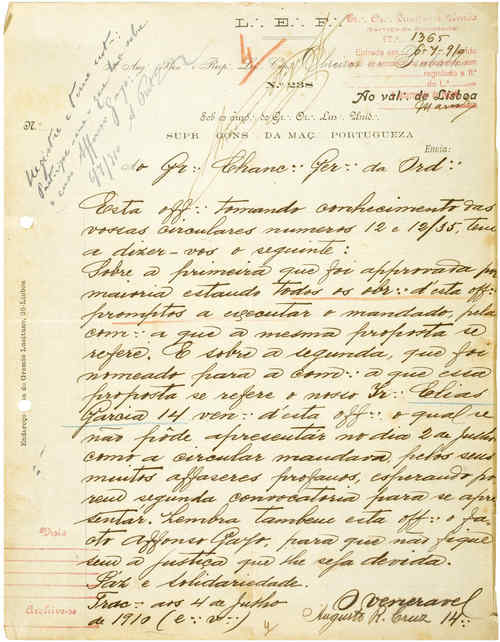 L∴ E∴ F∴
Gr∴ Or∴ Lusitano Unido
N.º 1365
Entrada em 6-7-910
registado a fl.
L.º
Á Aug∴ Resp∴ Cap∴ Obreiros do Trabalho
N.º 238
Ao val∴ de Lisboa
Sob os ausp∴ do Gr∴ Or∴ Lus∴ Unid∴
SUPR∴ CONS∴ DA MAÇ∴ PORTUGUEZA
N.º
Envia:
Registre e
Affonso Gayo
9/7/910
Ao Gr∴ Chanc∴ Ger∴ da Ord∴
Esta off∴ tomando conhecimento das
vossas circulares numeros 12 e 12/35, tem
a dizer-vos o seguinte:
Sobre a primeira que foi approvada por
maioria estando todos os obr∴ d'esta off∴
promptos a executar o mandado, pela
com∴ a que a mesma proposta se
refere. E sobre a segunda, que foi
nomeado para a com∴ a que essa
proposta se refere o nosso Ir∴ Elias
Garcia 14 ven∴ d'esta off∴ o qual se
não pôde apresentar no dia 2 de Julho
como a circular mandava, pelos seus
muitos affaseres profanos, esperando po
rem segunda convocatoria para se apre
sentar. Lembra tambem esta off∴ o fa
cto Affonso Gayo, para que não fique
sem a justiça que lhe seja devida.
Páz e solidariedade.
Trac∴ aos 4 de Julho
de 1910 (e∴ v∴)
O veneravel
Augusto R. Cruz 14∴
Endereço: Rua do Gremio Lusitano, 35-Lisboa
Visto
Archive-se